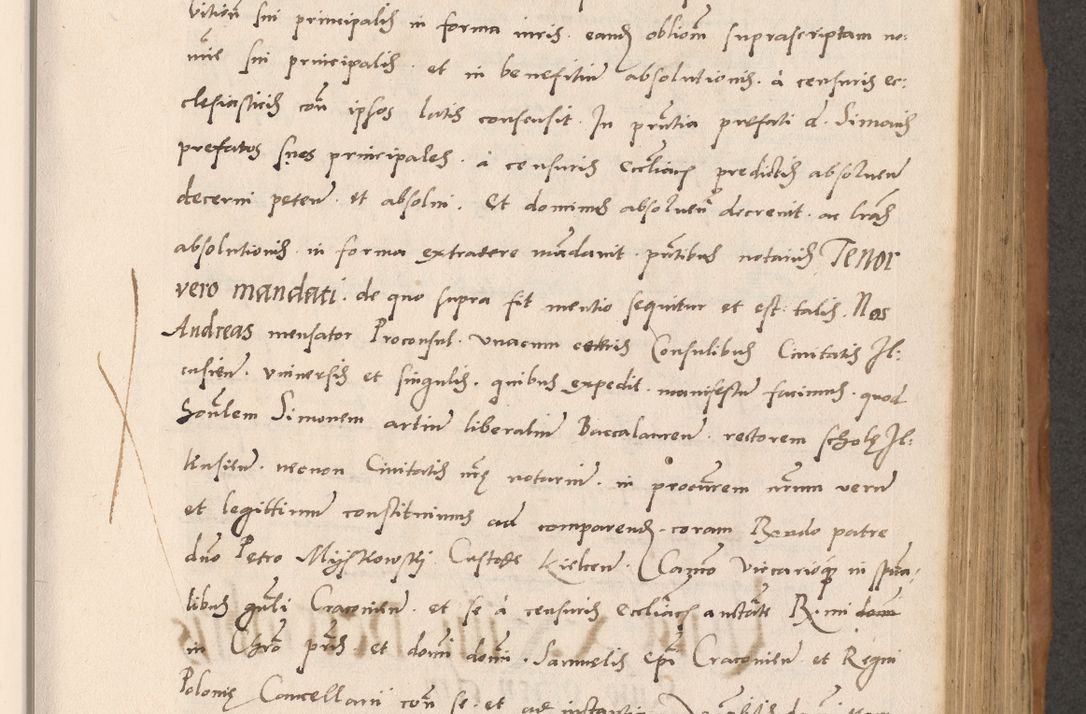 sui principalis in forma iuris. eand obliom suprascriptam no:
mie sui principalis. et in benefitiu absolutionis. à censuris ec:
clesiasticis con ipsos latis consensit. In pntia prefati d. Simonis
prefatos snos principales. à censuris eccliacs predictis absoluen
decerni peten. et absolui. Et dominus absoluen decreuit. ac lras
absolutionis in forma extradere mandauit. pntibus notarijs Tenor
vero mandati. de quo supra fit mentio sequitur et est talis. Nos
Andreas mensator Proconsul. vnacum Consulibus Ciuitatis Il:
cusien. vniuersis et singulis. quibus expedit. manifestu facimus. quod
honlem Simonem artiu liberaliu Baccalaureu. rectorem scholę Il:
kusien. necnon Ciuitatis nrę notariu. in procurem nrum veru
et legittimu constituimus ad comparend. coram Rndo patre
dno Petro Myskowskj Custode Kielcen. Canco Vicarioq in spua:
libus gnli Cracouien. et se à censuris eccliacs auctate R.mi dom
in Chro pris et domi domi. Samuelis epi Cracouien et Regni
Polonię Cancellarij con se. et ad